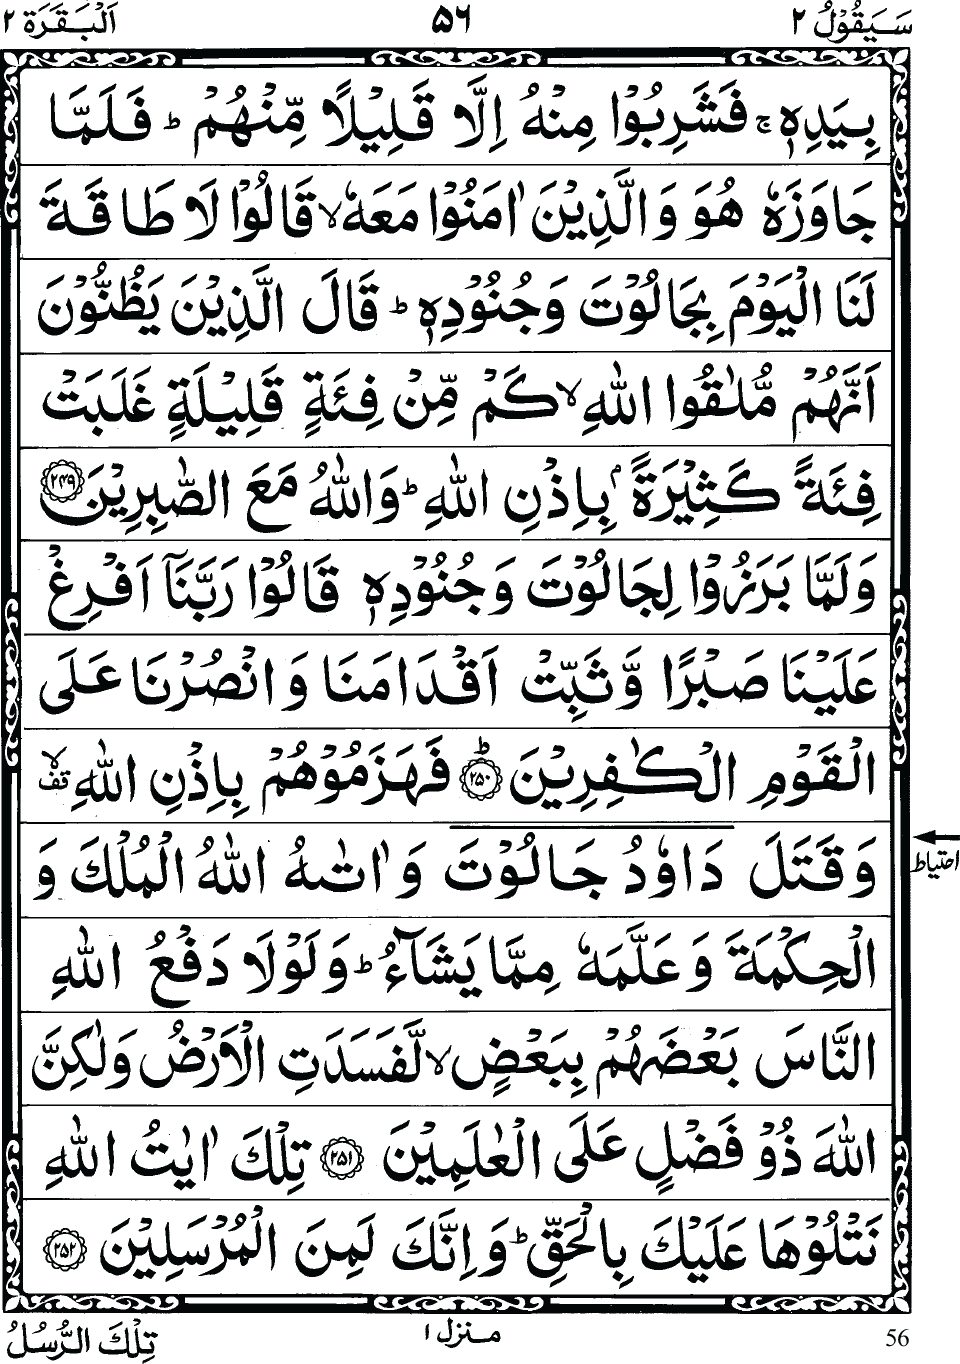 سَيَقُوْلُ ٢ ٥٦ اَلْبَقَرَة ٢
بِيَدِهٖ ۚ فَشَرِبُوْا مِنْهُ اِلَّا قَلِيْلًا مِّنْهُمْ ؕ فَلَمَّا
جَاوَزَهٗ هُوَ وَالَّذِيْنَ اٰمَنُوْا مَعَهٗ ۙ قَالُوْا لَا طَاقَةَ
لَنَا الْيَوْمَ بِجَالُوْتَ وَجُنُوْدِهٖ ؕ قَالَ الَّذِيْنَ يَظُنُّوْنَ
اَنَّهُمْ مُّلٰقُوا اللّٰهِ ۙ كَمْ مِّنْ فِئَةٍ قَلِيْلَةٍ غَلَبَتْ
فِئَةً كَثِيْرَةًۢ بِاِذْنِ اللّٰهِ ؕ وَاللّٰهُ مَعَ الصّٰبِرِيْنَ ﴿۲۴۹﴾
وَلَمَّا بَرَزُوْا لِجَالُوْتَ وَجُنُوْدِهٖ قَالُوْا رَبَّنَاۤ اَفْرِغْ
عَلَيْنَا صَبْرًا وَّثَبِّتْ اَقْدَامَنَا وَانْصُرْنَا عَلَى
الْقَوْمِ الْكٰفِرِيْنَ ؕ﴿۲۵۰﴾ فَهَزَمُوْهُمْ بِاِذْنِ اللّٰهِ ۙ تف
وَقَتَلَ دَاوٗدُ جَالُوْتَ وَاٰتٰىهُ اللّٰهُ الْمُلْكَ وَ
احتیاط
الْحِكْمَةَ وَعَلَّمَهٗ مِمَّا يَشَآءُ ؕ وَلَوْلَا دَفْعُ اللّٰهِ
النَّاسَ بَعْضَهُمْ بِبَعْضٍ ۙ لَّفَسَدَتِ الْاَرْضُ وَلٰكِنَّ
اللّٰهَ ذُوْ فَضْلٍ عَلَى الْعٰلَمِيْنَ ﴿۲۵۱﴾ تِلْكَ اٰيٰتُ اللّٰهِ
نَتْلُوْهَا عَلَيْكَ بِالْحَقِّ ؕ وَاِنَّكَ لَمِنَ الْمُرْسَلِيْنَ ﴿۲۵۲﴾
56 منزل ١ تِلْكَ الرُّسُلُ